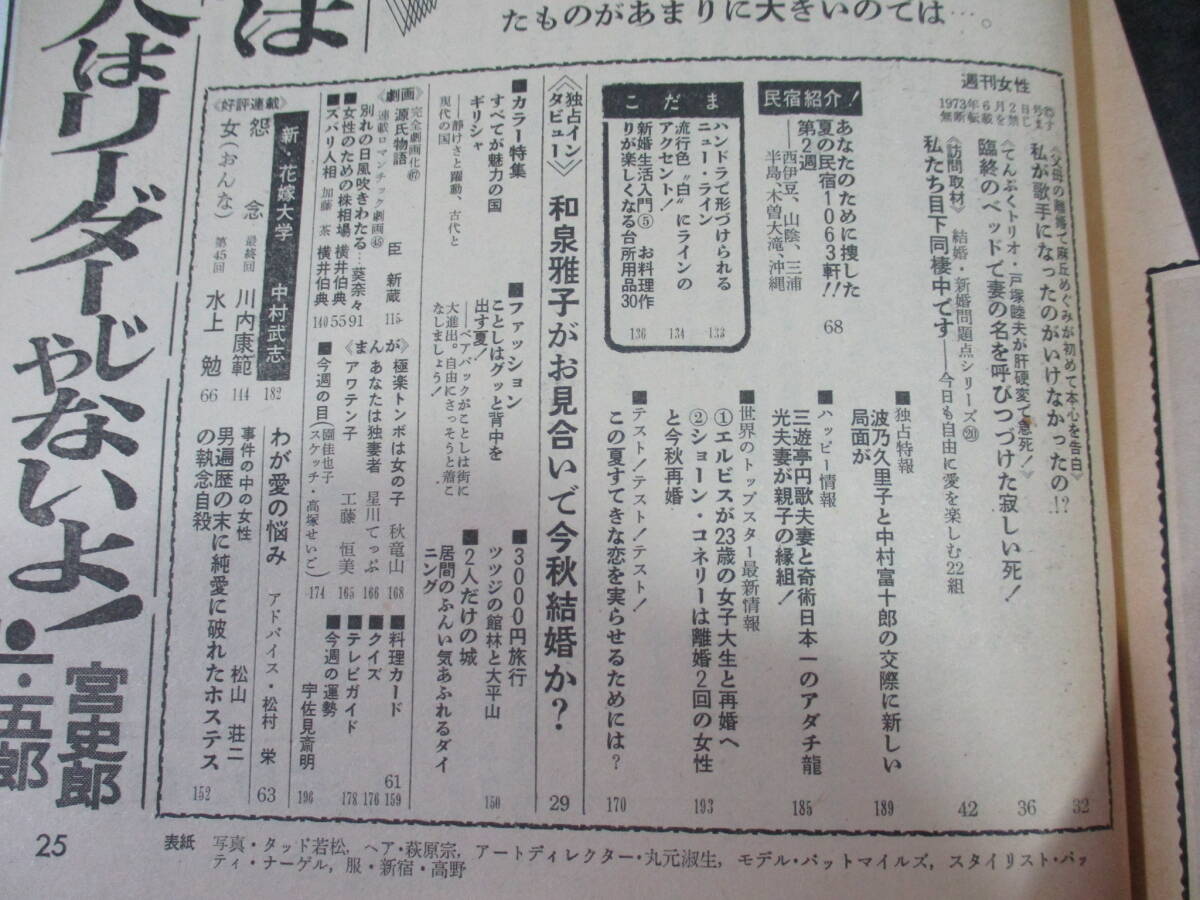 たものがあまりに大きいのでは…。
は
人はリーダーじゃないよ!
宮史郎
五郎
週刊女性
1973年6月2日号
無断転載を禁じます
《父母の離婚で麻丘めぐみが初めて本心を告白》
私が歌手になったのがいけなかったの!?
32
《てんぷくトリオ・戸塚睦夫が肝硬変で急死!》
臨終のベッドで妻の名を呼びつづけた寂しい死!
36
《訪問取材》 結婚・新婚問題点シリーズ⑳
私たち目下同棲中です——今日も自由に愛を楽しむ22組
42
■独占特報
波乃久里子と中村富十郎の交際に新しい
局面が
189
■ハッピー情報
三遊亭円歌夫妻と奇術日本一のアダチ龍
光夫妻が親子の縁組!
185
■世界のトップスター最新情報
①エルビスが23歳の女子大生と再婚へ
②ショーン・コネリーは離婚2回の女性
と今秋再婚
193
■テスト!テスト!テスト!
この夏すてきな恋を実らせるためには?
170
民宿紹介!
あなたのために捜した
夏の民宿1063軒!!
第2週
——西伊豆、山陰、三浦
半島、木曽大滝、沖縄
68
こだま
ハンドラで形づけられる
ニュー・ライン
133
流行色“白”にラインの
アクセント!
134
新婚生活入門⑤ お料理作
りが楽しくなる台所用品30
136
《独占インタビュー》 和泉雅子がお見合いで今秋結婚か?
29
■カラー特集
すべてが魅力の国
ギリシャ
——静けさと躍動、古代と
現代の国
■ファッション
ことしはグッと背中を
出す夏!
——ベアバックがことしは街に
大進出。自由にさっそうと着こ
なしましょう!
■3000円旅行
ツツジの館林と大平山
150
■2人だけの城
居間のふんい気あふれるダイ
ニング
《劇画》
完全劇画化㊼
源氏物語 臣 新蔵
115
連載ロマンチック劇画㊺
別れの日風吹きわたる…葵奈々
91
■女性のための株相場 横井伯典
55
■ズバリ人相 加藤 茶 横井伯典
140
《まんが》
極楽トンボは女の子 秋竜山
168
あなたは独妻者 星川てっぷ
166
アワテン子 工藤恒美
165
■今週の目(園佳也子
スケッチ・高塚せいご)
174
■料理カード
61
159
■クイズ
176
■テレビガイド
178
■今週の運勢 宇佐見斎明
196
《好評連載》
新・花嫁大学 中村武志
182
怨念 最終回 川内康範
144
女(おんな) 第45回 水上 勉
66
わが愛の悩み アドバイス・松村 栄
63
事件の中の女性
男遍歴の末に純愛に破れたホステス
の執念自殺 松山 荘二
152
25
表紙 写真・タッド若松, ヘア・萩原宗, アートディレクター・丸元淑生, モデル・パットマイルズ, スタイリスト・パッ
ティ・ナーゲル, 服・新宿・高野